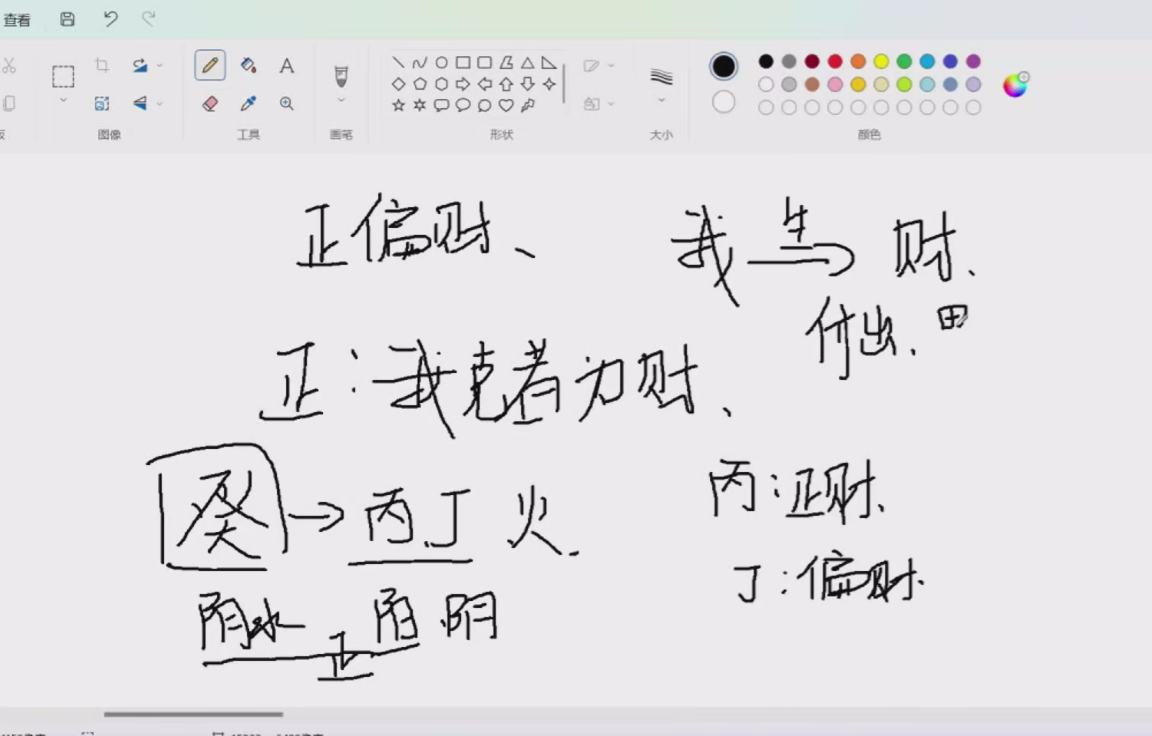 查看
A
图像
工具
画笔
形状
大小
颜色
正偏财、
我 生 财、
付出、田
正：我克者为财、
癸→丙丁火.
丙：正财、
丁：偏财.
阴水 正 阳 阴